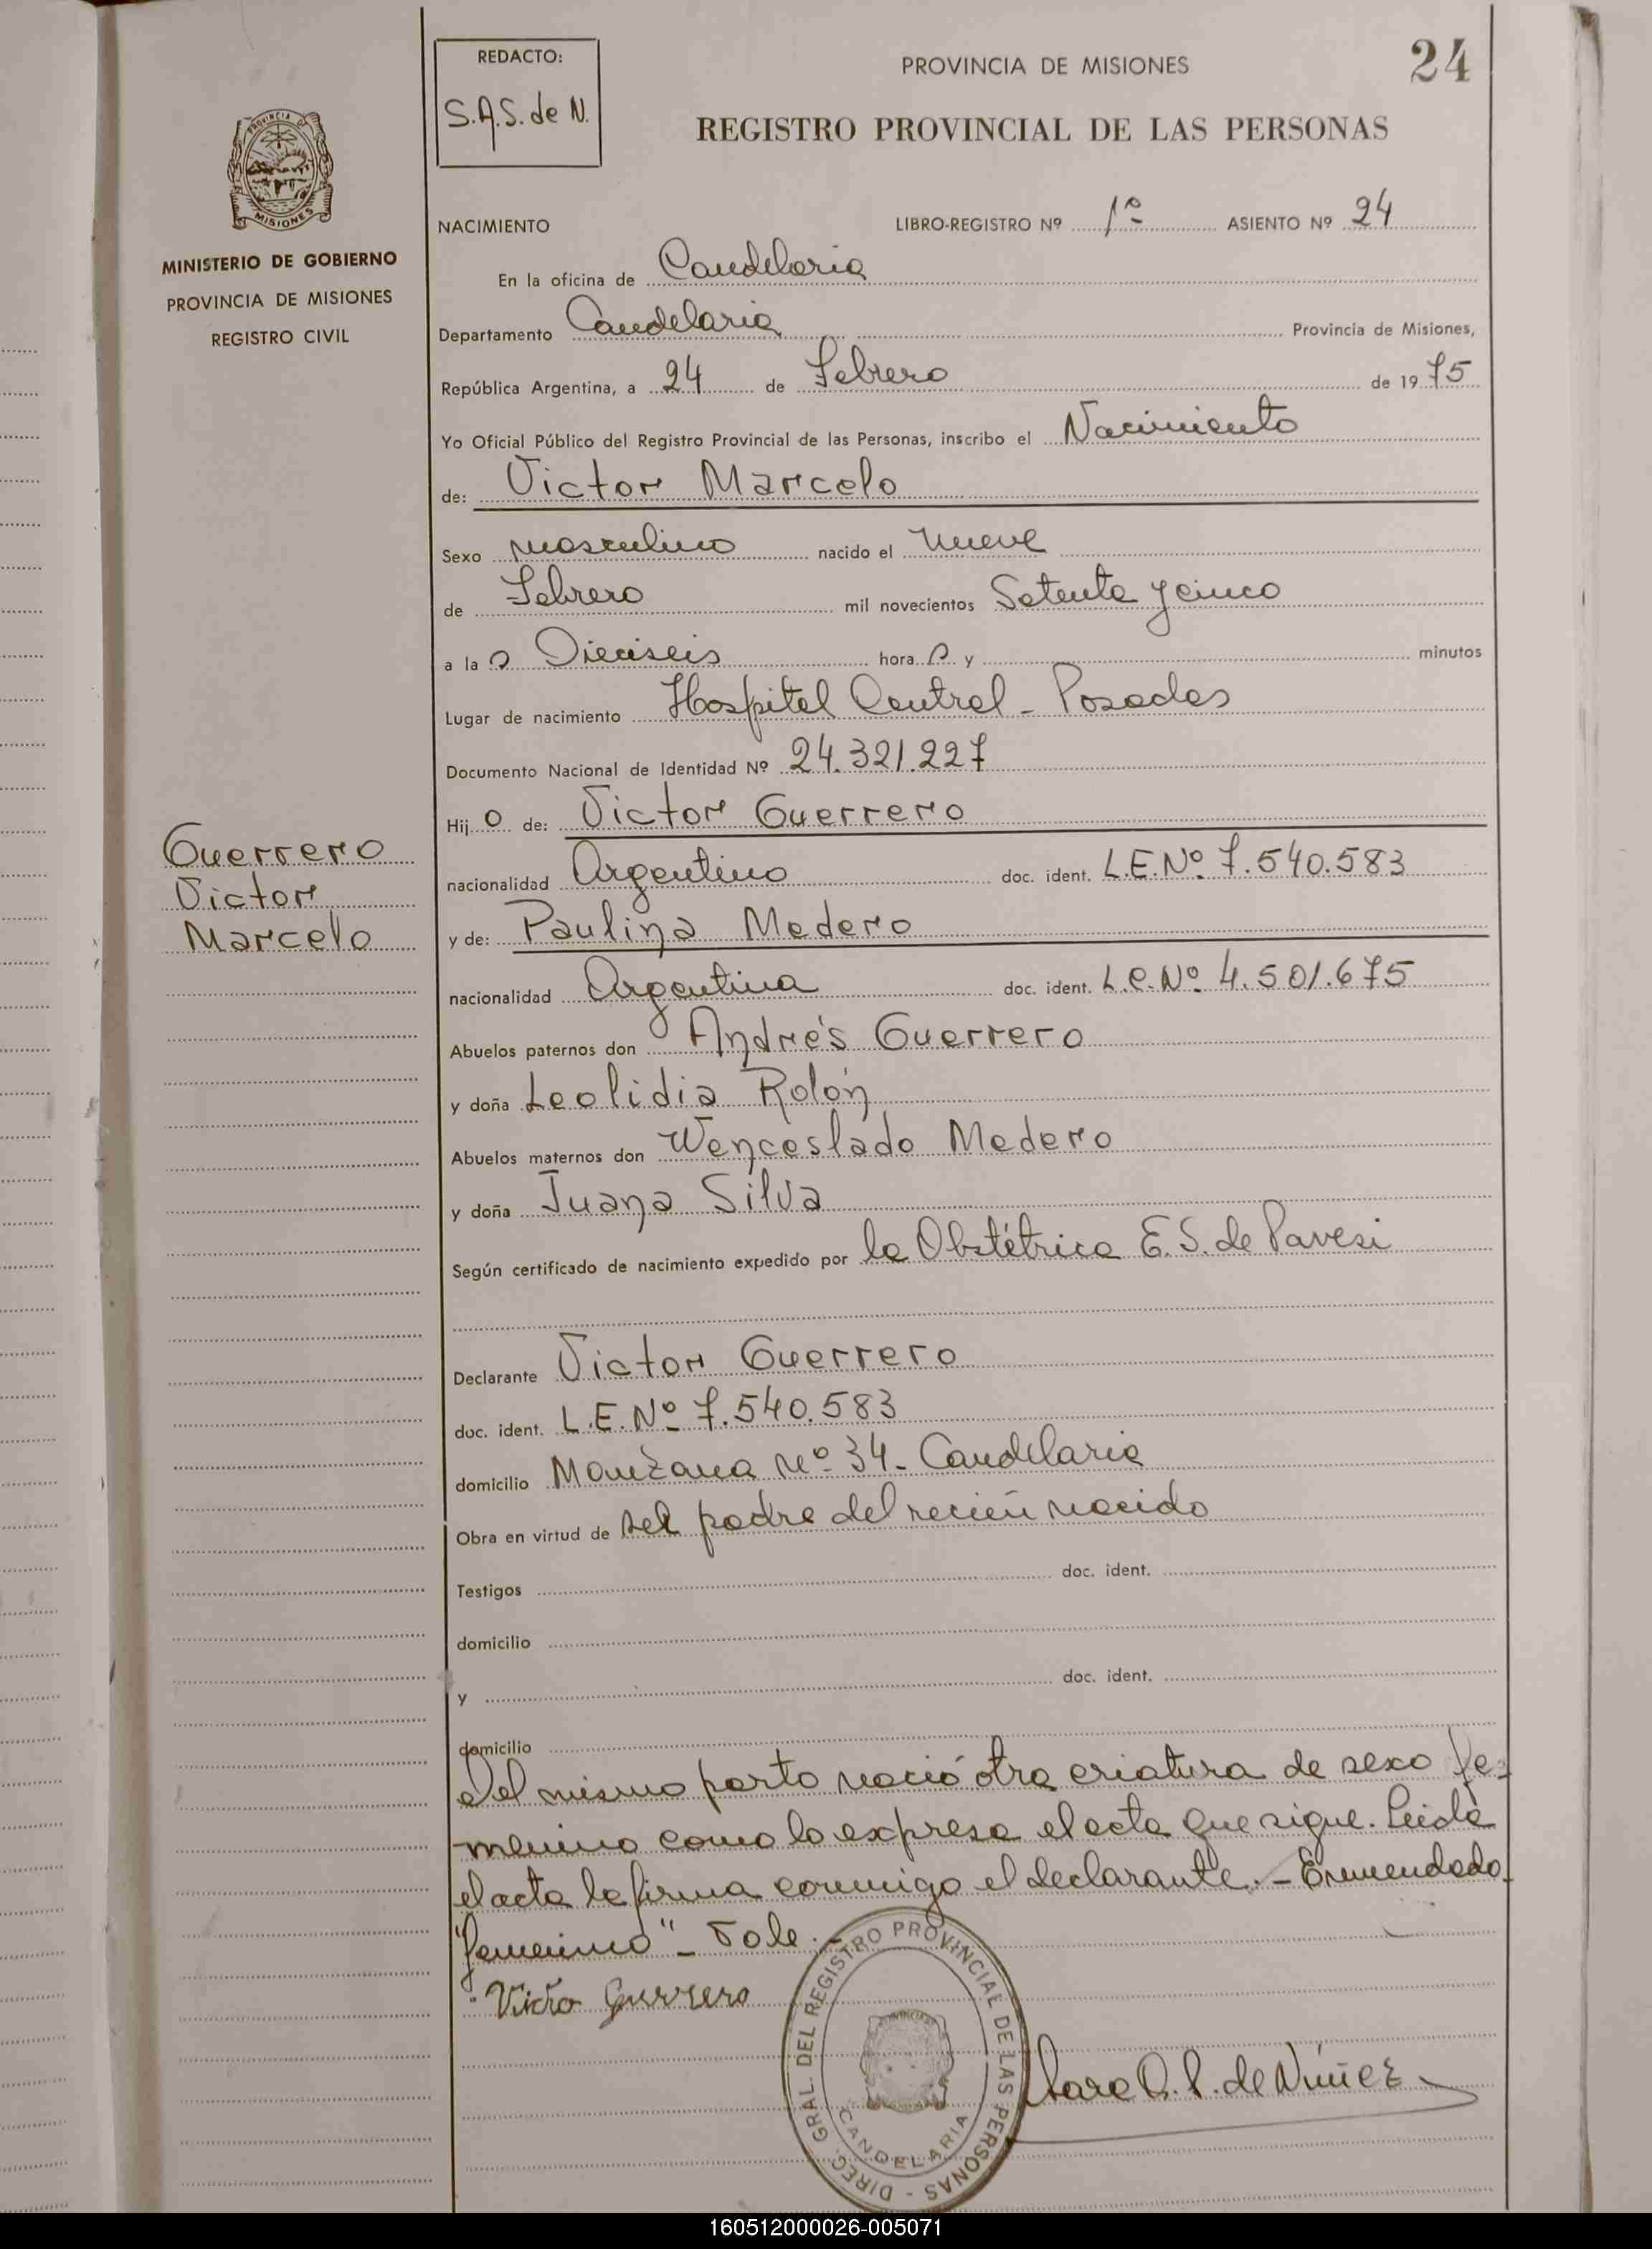 REDACTO:
S.A.S. de N.
PROVINCIA DE MISIONES
24
REGISTRO PROVINCIAL DE LAS PERSONAS
PROVINCIA DE
MISIONES
MINISTERIO DE GOBIERNO
PROVINCIA DE MISIONES
REGISTRO CIVIL
NACIMIENTO LIBRO-REGISTRO Nº 1º ASIENTO Nº 24
En la oficina de Candelaria
Departamento Candelaria Provincia de Misiones,
República Argentina, a 24 de Febrero de 1975
Yo Oficial Público del Registro Provincial de las Personas, inscribo el Nacimiento
de: Victor Marcelo
Sexo masculino nacido el nueve
de Febrero mil novecientos Setenta y cinco
a la s Dieciseis hora s y minutos
Lugar de nacimiento Hospital Central - Posadas
Documento Nacional de Identidad Nº 24.321.227
Hij o de: Victor Guerrero
nacionalidad Argentino doc. ident. L.E.Nº 7.540.583
y de: Paulina Medero
nacionalidad Argentina doc. ident. L.C.Nº 4.501.675
Abuelos paternos don Andrés Guerrero
y doña Leolidia Rolón
Abuelos maternos don Wenceslado Medero
y doña Juana Silva
Según certificado de nacimiento expedido por la Obstétrica E.S. de Pavesi
Declarante Victor Guerrero
doc. ident. L.E.Nº 7.540.583
domicilio Manzana nº 34 - Candelaria
Obra en virtud de ser padre del recien nacido
Testigos doc. ident.
domicilio
y doc. ident.
domicilio
del mismo parto nació otra criatura de sexo fe-
menino como lo expresa el acta que sigue. Leida
el acta la firma conmigo el declarante. - Enmendado
"femenino" - Vale. -
Victo Guerrero
DIREC. GRAL. DEL REGISTRO PROVINCIAL DE LAS PERSONAS -
CANDELARIA
de Núñez
Guerrero
Victor
Marcelo
160512000026-005071